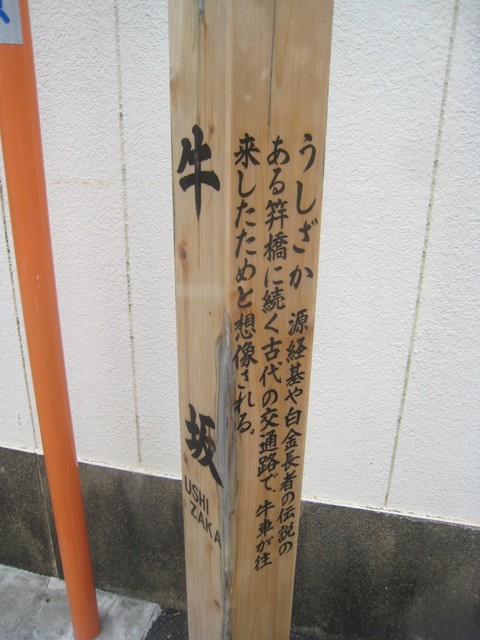 牛坂
USHI
ZAKA
うしざか 源経基や白金長者の伝説の
ある笄橋に続く古代の交通路で、牛車が往
来したためと想像される。